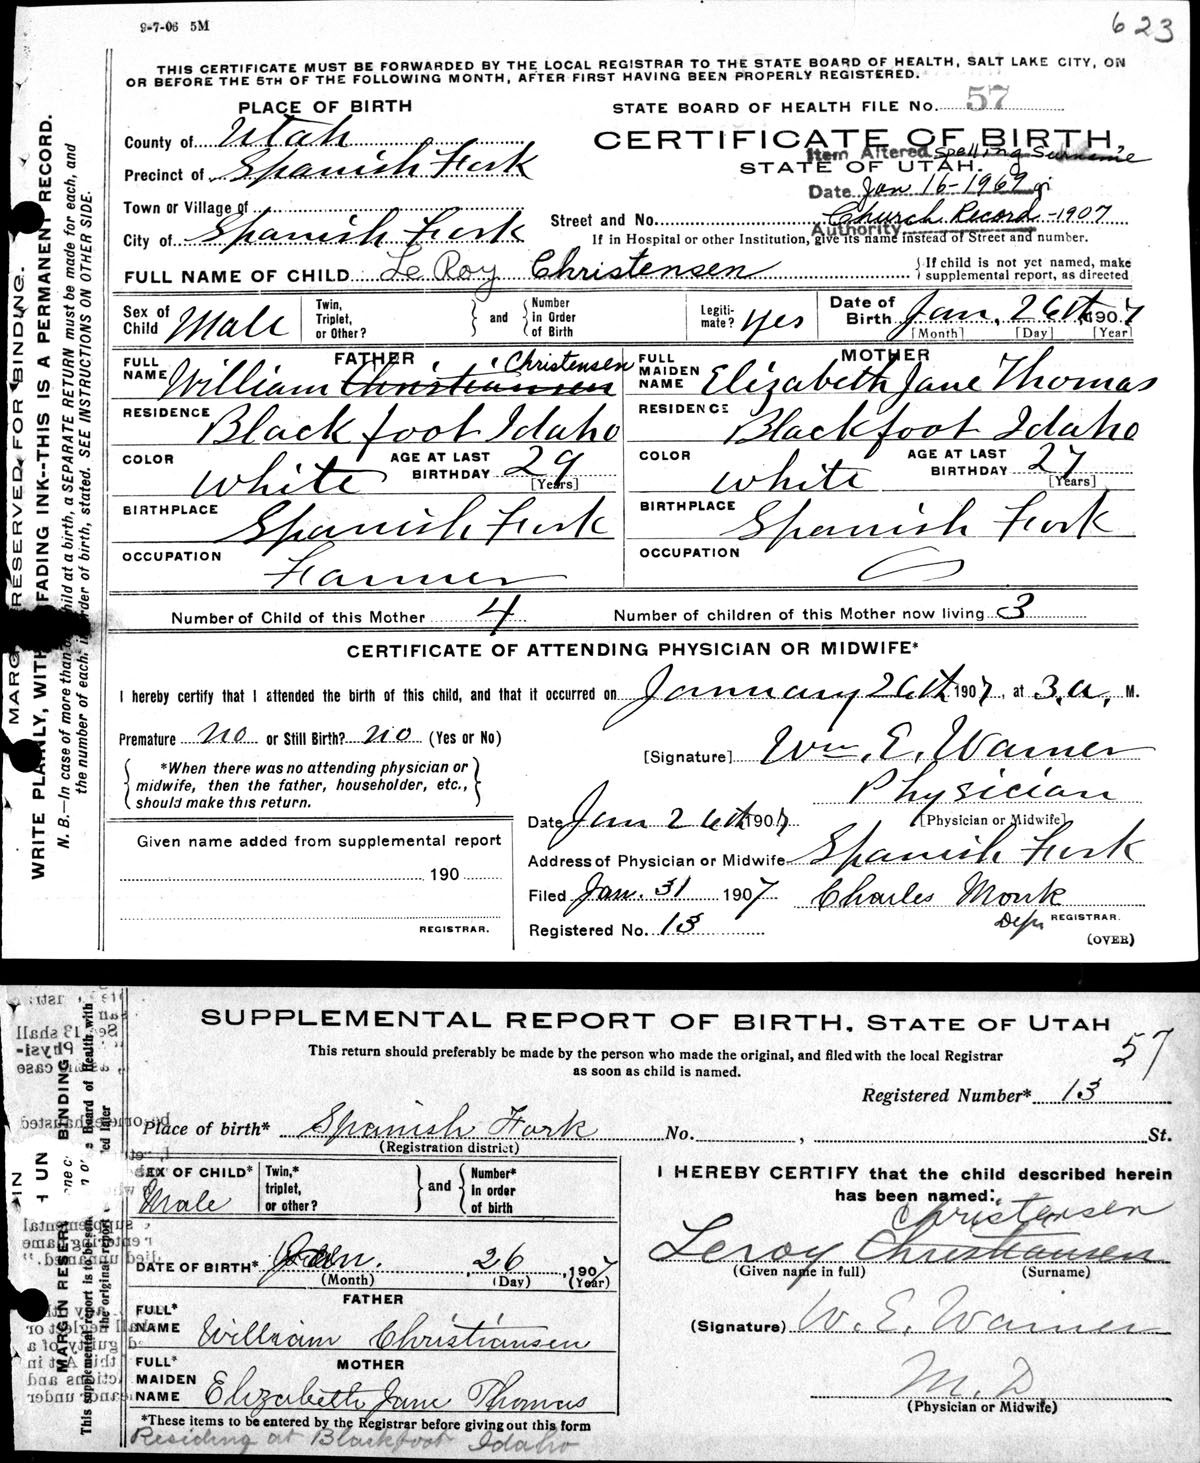 9-7-06 5M
623
THIS CERTIFICATE MUST BE FORWARDED BY THE LOCAL REGISTRAR TO THE STATE BOARD OF HEALTH, SALT LAKE CITY, ON
OR BEFORE THE 5TH OF THE FOLLOWING MONTH, AFTER FIRST HAVING BEEN PROPERLY REGISTERED.
PLACE OF BIRTH
STATE BOARD OF HEALTH FILE No. 57
County of Utah
CERTIFICATE OF BIRTH
Item Altered Spelling Surname
STATE OF UTAH.
Precinct of Spanish Fork
Date Jan 16-1969
Town or Village of
Church Record -1907
Street and No.
Authority
City of Spanish Fork
If in Hospital or other Institution, give its name instead of Street and number.
FULL NAME OF CHILD Le Roy Christensen
If child is not yet named, make
supplemental report, as directed
Sex of Child Male
Twin, Triplet, or Other?
and
Number in Order of Birth
Legiti-mate? Yes
Date of Birth Jan. 26th 1907
[Month] [Day] [Year]
FATHER
FULL NAME William Christiansen Christensen
RESIDENCE Blackfoot Idaho
COLOR White
AGE AT LAST BIRTHDAY 29 [Years]
BIRTHPLACE Spanish Fork
OCCUPATION Farmer
MOTHER
FULL MAIDEN NAME Elizabeth Jane Thomas
RESIDENCE Blackfoot Idaho
COLOR White
AGE AT LAST BIRTHDAY 27 [Years]
BIRTHPLACE Spanish Fork
OCCUPATION
Number of Child of this Mother 4
Number of children of this Mother now living 3
CERTIFICATE OF ATTENDING PHYSICIAN OR MIDWIFE*
I hereby certify that I attended the birth of this child, and that it occurred on January 26th 1907, at 3.a. M.
Premature no or Still Birth? no (Yes or No)
[Signature] Wm. E. Warner
*When there was no attending physician or
midwife, then the father, householder, etc.,
should make this return.
Physician
[Physician or Midwife]
Date Jan 26th 1907
Given name added from supplemental report
190
REGISTRAR.
Address of Physician or Midwife Spanish Fork
Filed Jan. 31 1907
Charles Monk
Depy REGISTRAR.
Registered No. 13
(OVER)
MARG RESERVED FOR BINDING.
WRITE PLAINLY, WITH FADING INK--THIS IS A PERMANENT RECORD.
N. B.—In case of more than child at a birth, a SEPARATE RETURN must be made for each, and
the number of each, in order of birth, stated. SEE INSTRUCTIONS ON OTHER SIDE.
SUPPLEMENTAL REPORT OF BIRTH, STATE OF UTAH
57
This return should preferably be made by the person who made the original, and filed with the local Registrar
as soon as child is named.
Registered Number* 13
Place of birth* Spanish Fork No. , St.
(Registration district)
SEX OF CHILD* Male
Twin,* triplet, or other?
and
Number* in order of birth
DATE OF BIRTH* Jan. 26, 1907
(Month) (Day) (Year)
FATHER
FULL* NAME William Christiansen
MOTHER
FULL* MAIDEN NAME Elizabeth Jane Thomas
*These items to be entered by the Registrar before giving out this form
Residing at Blackfoot Idaho
I HEREBY CERTIFY that the child described herein
has been named:
Christensen
Leroy Christiansen
(Given name in full) (Surname)
(Signature) W. E. Warner
M. D
(Physician or Midwife)
MARGIN RESERV BINDING
This supplemental report is to be sen Board of Health with
the original report